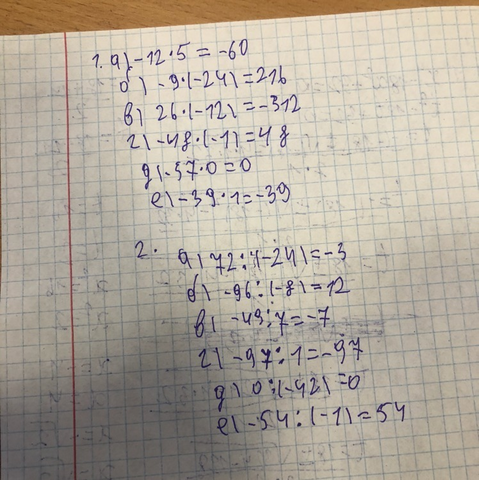 1. а) -12·5 = -60
б) -9·(-24) = 216
в) 26·(-12) = -312
г) -48·(-1) = 48
д) -37·0 = 0
е) -39·1 = -39
2. а) 72:(-24) = -3
б) -96:(-8) = 12
в) -49:7 = -7
г) -97:1 = -97
д) 0:(-42) = 0
е) -54:(-1) = 54